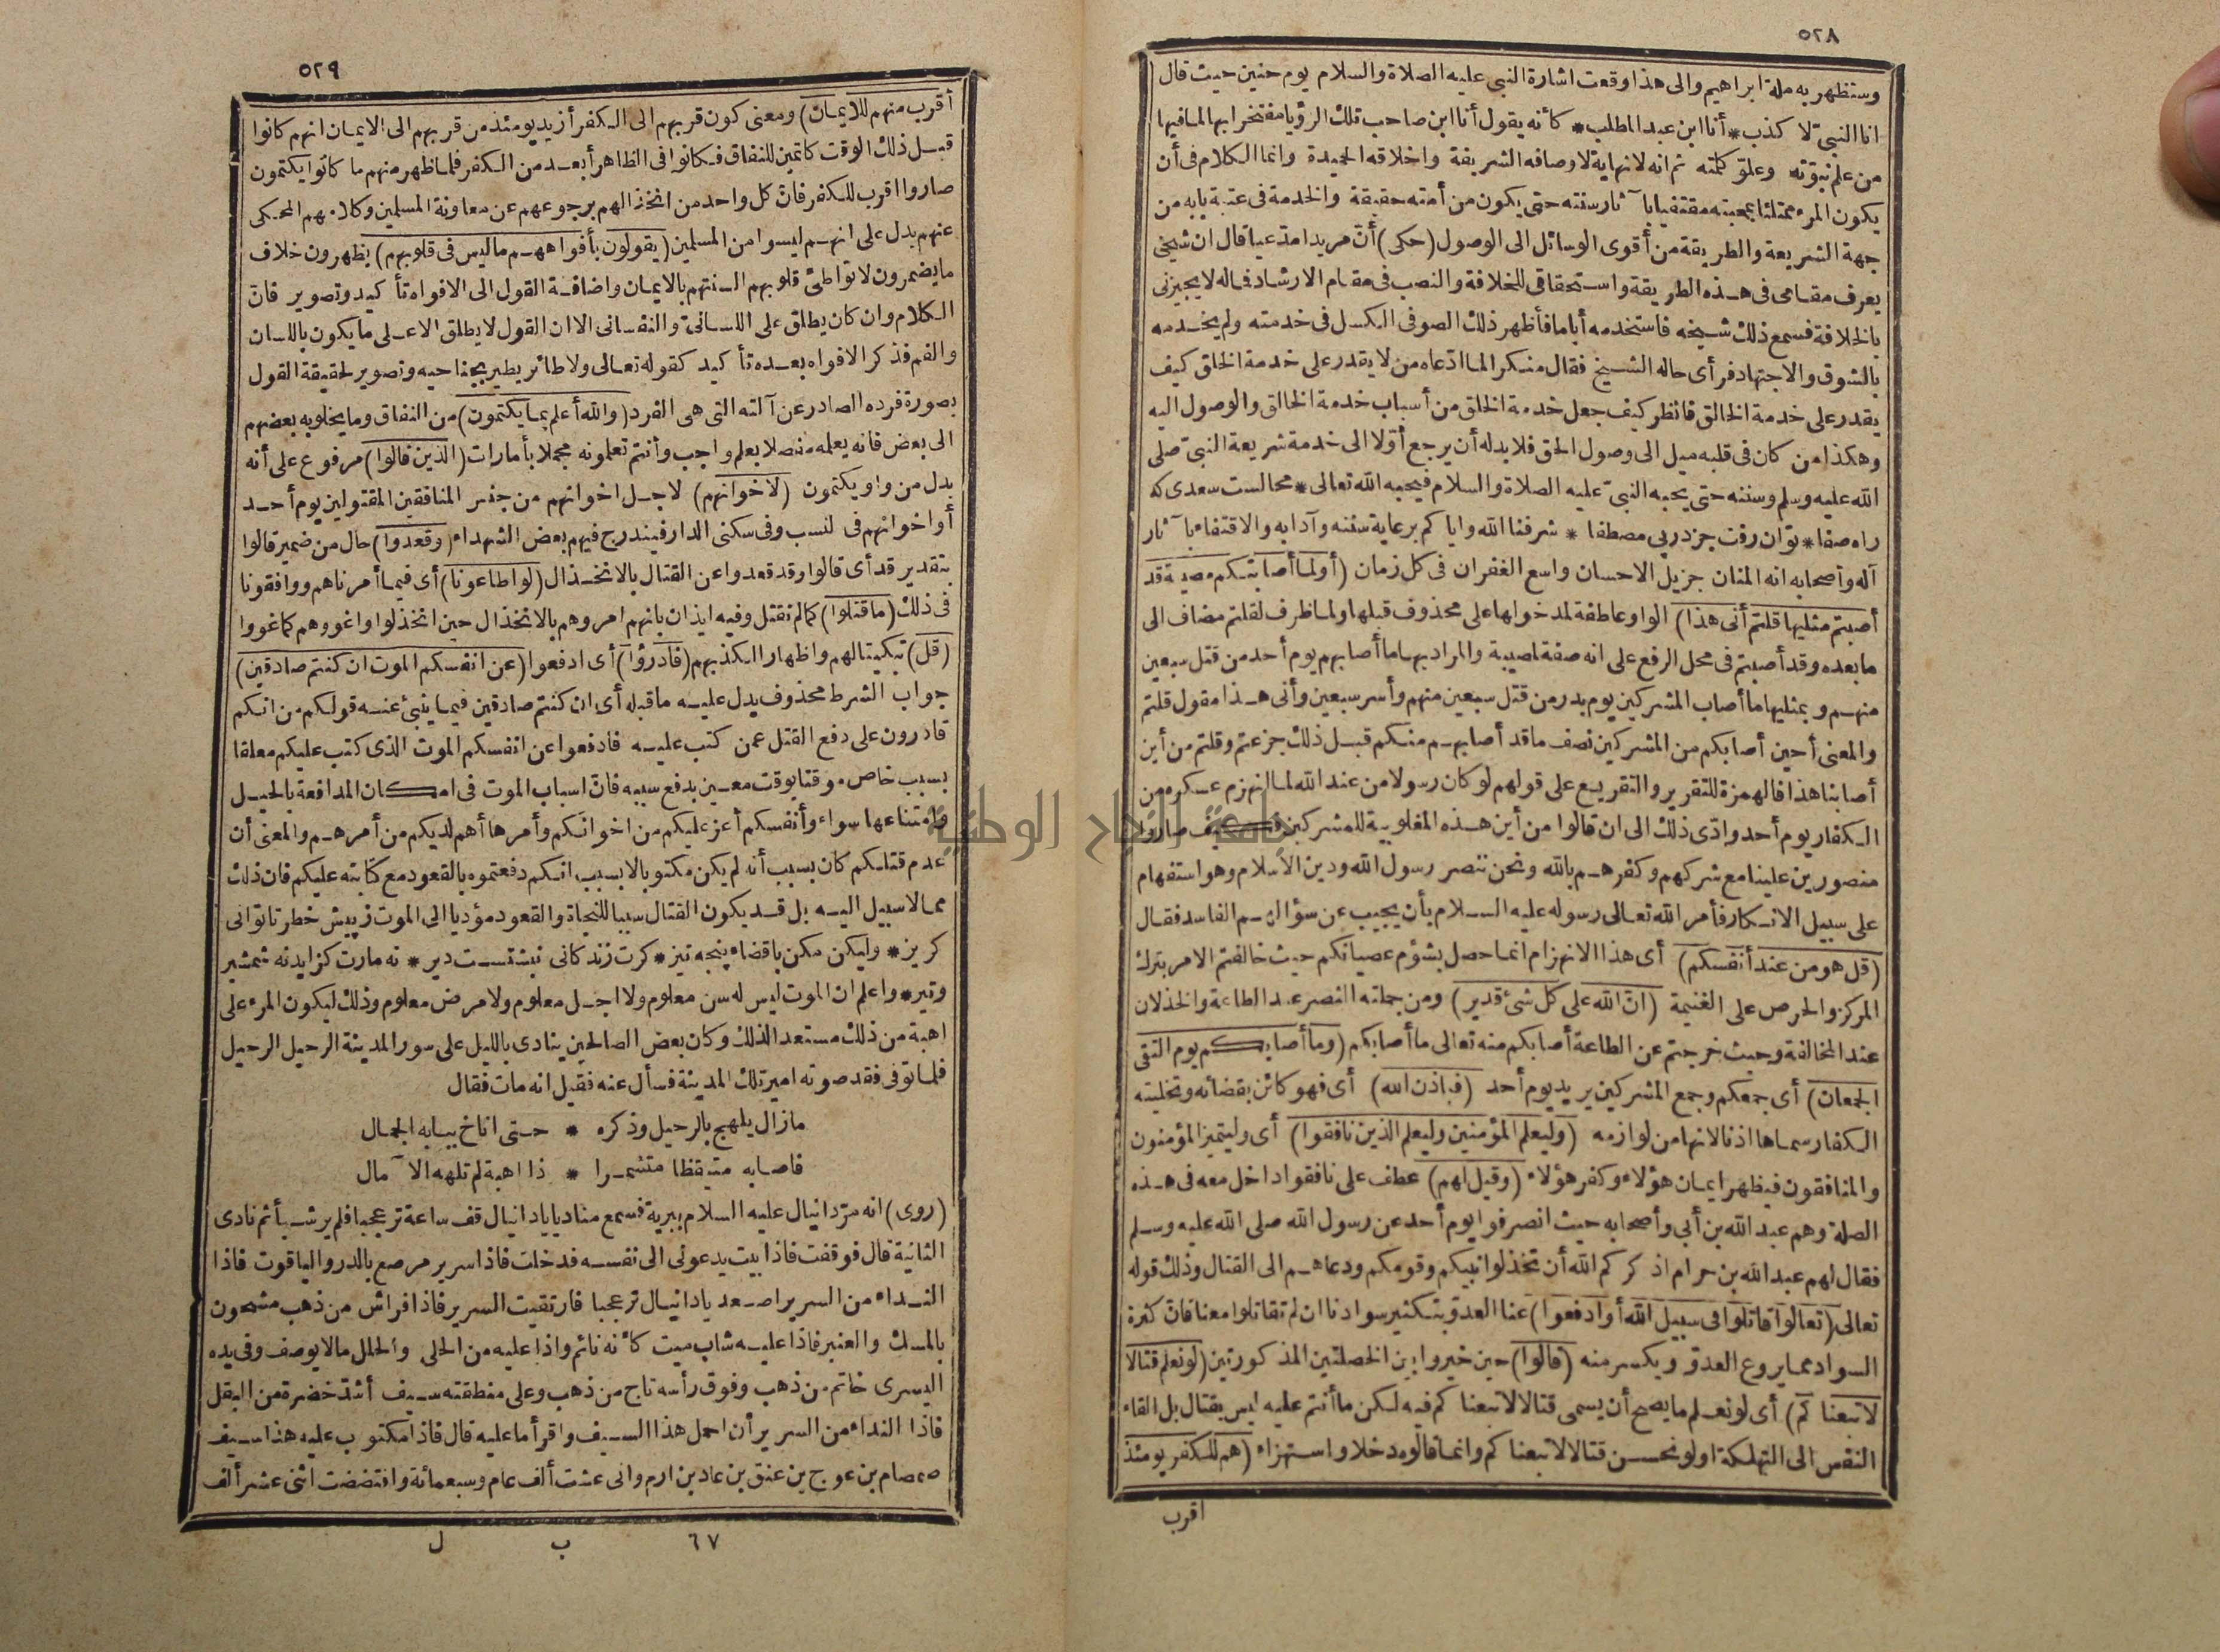 ٥٢٨
وستظهر به ملة ابراهيم والى هذا وقعت اشارة النبي عليه الصلاة والسلام يوم حنين حيث قال
انا النبيّ لا كذب * أنا ابن عبد المطلب * كأنه يقول أنا ابن صاحب تلك الرؤيا مفتخرا بها لما فيها
من علم نبوّته وعلوّ كلمته ثم انه لا نهاية لاوصافه الشريفة واخلاقه الحميدة وانما الكلام فى أن
يكون المرء ممتلئا بمحبته مقتفيا بآثار سنته حتى يكون من أمته حقيقة والخدمة فى عتبة بابه من
جهة الشريعة والطريقة من أقوى الوسائل الى الوصول (حكى) أنّ مريدا مدّعيا قال ان شيخى
يعرف مقامى فى هذه الطريقة واستحقاقى للخلافة والنصب فى مقام الارشاد فماله لا يجيزنى
بالخلافة فسمع ذلك شيخه فاستخدمه أياما فأظهر ذلك الصوفى الكسل فى خدمته ولم يخدمه
بالشوق والاجتهاد فرأى حاله الشيخ فقال منكرا لما ادّعاه من لا يقدر على خدمة الخلق كيف
يقدر على خدمة الخالق فانظر كيف جعل خدمة الخلق من أسباب خدمة الخالق والوصول اليه
وهكذا من كان فى قلبه ميل الى وصول الحق فلا بد له أن يرجع أوّلا الى خدمة شريعة النبيّ صلى
الله عليه وسلم وسنته حتى يحبه النبيّ عليه الصلاة والسلام فيحبه الله تعالى * محالست سعدى كه
راه صفا * توان رفت جز در پى مصطفا * شرفنا الله واياكم برعاية سننه وآدابه والاقتفاء بآثار
آله وأصحابه انه المنان جزيل الاحسان واسع الغفران فى كل زمان (أولما أصابتكم مصيبة قد
أصبتم مثليها قلتم أنى هذا) الواو عاطفة لمدخولها على محذوف قبلها ولما ظرف لقلتم مضاف الى
ما بعده وقد أصبتم فى محل الرفع على انه صفة لمصيبة والمراد بها ما أصابهم يوم أحد من قتل سبعين
منهم وبمثليها ما أصاب المشركين يوم بدر من قتل سبعين منهم وأسر سبعين وأنى هذا مقول قلتم
والمعنى أحين أصابكم من المشركين نصف ما قد أصابهم منكم قبل ذلك جزعتم وقلتم من أين
أصابنا هذا فالهمزة للتقرير والتقريع على قولهم لو كان رسولا من عند الله لما انهزم عسكره من
الكفار يوم أحد وادّى ذلك الى ان قالوا من أين هذه المغلوبية للمشركين فكيف صاروا
منصورين علينا مع شركهم وكفرهم بالله ونحن ننصر رسول الله ودين الاسلام وهو استفهام
على سبيل الانكار فأمر الله تعالى رسوله عليه السلام بأن يجيب عن سؤالهم الفاسد فقال
(قل هو من عند أنفسكم) أى هذا الانهزام انما حصل بشؤم عصيانكم حيث خالفتم الامر بترك
المركز والحرص على الغنيمة (انّ الله على كل شئ قدير) ومن جملته النصر عند الطاعة والخذلان
عند المخالفة وحيث خرجتم عن الطاعة أصابكم منه تعالى ما أصابكم (وما أصابكم يوم التقى
الجمعان) أى جمعكم وجمع المشركين يريد يوم أحد (فباذن الله) أى فهو كائن بقضائه وتخليته
الكفار سماها اذنا لانها من لوازمه (وليعلم المؤمنين وليعلم الذين نافقوا) أى وليتميز المؤمنون
والمنافقون فيظهر ايمان هؤلاء وكفر هؤلاء (وقيل لهم) عطف على نافقوا داخل معه فى هذه
الصلة وهم عبد الله بن أبي وأصحابه حيث انصرفوا يوم أحد عن رسول الله صلى الله عليه وسلم
فقال لهم عبد الله بن حرام اذكركم الله أن تخذلوا نبيكم وقومكم ودعاهم الى القتال وذلك قوله
تعالى (تعالوا قاتلوا فى سبيل الله أو ادفعوا) عنا العدوّ بتكثير سوادنا ان لم تقاتلوا معنا فانّ كثرة
السواد مما يروع العدوّ ويكسر منه (قالوا) حين خيروا بين الخصلتين المذكورتين (لو نعلم قتالا
لاتبعناكم) أى لو نعلم ما يصح أن يسمى قتالا لاتبعناكم فيه لكن ما أنتم عليه ليس بقتال بل القاء
النفس الى التهلكة او لو نحسن قتالا لاتبعناكم وانما قالوه دخلا واستهزاء (هم للكفر يومئذ
اقرب
٥٢٩
أقرب منهم للايمان) ومعنى كون قربهم الى الكفر أزيد يومئذ من قربهم الى الايمان انهم كانوا
قبل ذلك الوقت كاتمين للنفاق فكانوا فى الظاهر أبعد من الكفر فلما ظهر منهم ما كانوا يكتمون
صاروا اقرب للكفر فانّ كل واحد من انخذالهم برجوعهم عن معاونة المسلمين وكلامهم المحكى
عنهم يدل على انهم ليسوا من المسلمين (يقولون بأفواههم ما ليس فى قلوبهم) يظهرون خلاف
ما يضمرون لا تواطئ قلوبهم السنتهم بالايمان واضافة القول الى الافواه تأكيد وتصوير فانّ
الكلام وان كان يطلق على اللسانى والنفسانى الا ان القول لا يطلق الا على ما يكون باللسان
والفم فذكر الافواه بعده تأكيد كقوله تعالى ولا طائر يطير بجناحيه وتصوير لحقيقة القول
بصورة فرده الصادر عن آلته التى هى الفرد (والله أعلم بما يكتمون) من النفاق وما يخلو به بعضهم
الى بعض فانه يعلمه مفصلا بعلم واجب وأنتم تعلمونه مجملا بأمارات (الذين قالوا) مرفوع على أنه
بدل من واو يكتمون (لاخوانهم) لاجل اخوانهم من جنس المنافقين المقتولين يوم أحد
أو اخوانهم فى النسب وفى سكنى الدار فيندرج فيهم بعض الشهداء (وقعدوا) حال من ضمير قالوا
بتقدير قد أى قالوا وقد قعدوا عن القتال بالانخذال (لو اطاعونا) أى فيما أمرناهم ووافقونا
فى ذلك (ما قتلوا) كما لم نقتل وفيه ايذان بانهم امروهم بالانخذال حين انخذلوا واغووهم كما غووا
(قل) تبكيتا لهم واظهارا لكذبهم (فادرؤا) أى ادفعوا (عن انفسكم الموت ان كنتم صادقين)
جواب الشرط محذوف يدل عليه ما قبله أى ان كنتم صادقين فيما ينبئ عنه قولكم من انكم
قادرون على دفع القتل عمن كتب عليه فادفعوا عن انفسكم الموت الذى كتب عليكم معلقا
بسبب خاص موقتا بوقت معين بدفع سببه فانّ اسباب الموت فى امكان المدافعة بالحيل
وامتناعها سواء وأنفسكم أعز عليكم من اخوانكم وأمرها أهم لديكم من أمرهم والمعنى أن
عدم قتلكم كان بسبب أنه لم يكن مكتوبا لا بسبب انكم دفعتموه بالقعود مع كتابته عليكم فان ذلك
مما لا سبيل اليه بل قد يكون القتال سببا للنجاة والقعود مؤديا الى الموت ز پيش خطر تا توانى
كريز * وليكن مكن با قضاء پنجه تيز * كرت زندكانى نبشتست دير * نه مارت كزايد نه شمشير
وتير * واعلم ان الموت ليس له سن معلوم ولا اجل معلوم ولا مرض معلوم وذلك ليكون المرء على
اهبة من ذلك مستعدا لذلك وكان بعض الصالحين ينادى بالليل على سور المدينة الرحيل الرحيل
فلما توفى فقد صوته امير تلك المدينة فسأل عنه فقيل انه مات فقال
مازال يلهج بالرحيل وذكره * حتى اناخ ببابه الجمال
فاصابه متيقظا متشمرا * ذا اهبة لم تلهه الآمال
(روى) انه مرّ دانيال عليه السلام ببرية فسمع مناديا يا دانيال قف ساعة تر عجبا فلم ير شيأ ثم نادى
الثانية قال فوقفت فاذا بيت يدعونى الى نفسه فدخلت فاذا سرير مرصع بالدر والياقوت فاذا
النداء من السرير اصعد يا دانيال تر عجبا فارتقيت السرير فاذا فراش من ذهب مشحون
بالمسك والعنبر فاذا عليه شاب ميت كأنه نائم واذا عليه من الحلى والحلل ما لا يوصف وفى يده
اليسرى خاتم من ذهب وفوق رأسه تاج من ذهب وعلى منطقته سيف أشدّ خضرة من البقل
فاذا النداء من السرير أن احمل هذا السيف واقرأ ما عليه قال فاذا مكتوب عليه هذا سيف
صمصام بن عوج بن عنق بن عاد بن ارم وانى عشت ألف عام وسبعمائة وافتضضت اثنى عشر ألف
٦٧ ب ل
جامعة النجاح الوطنية